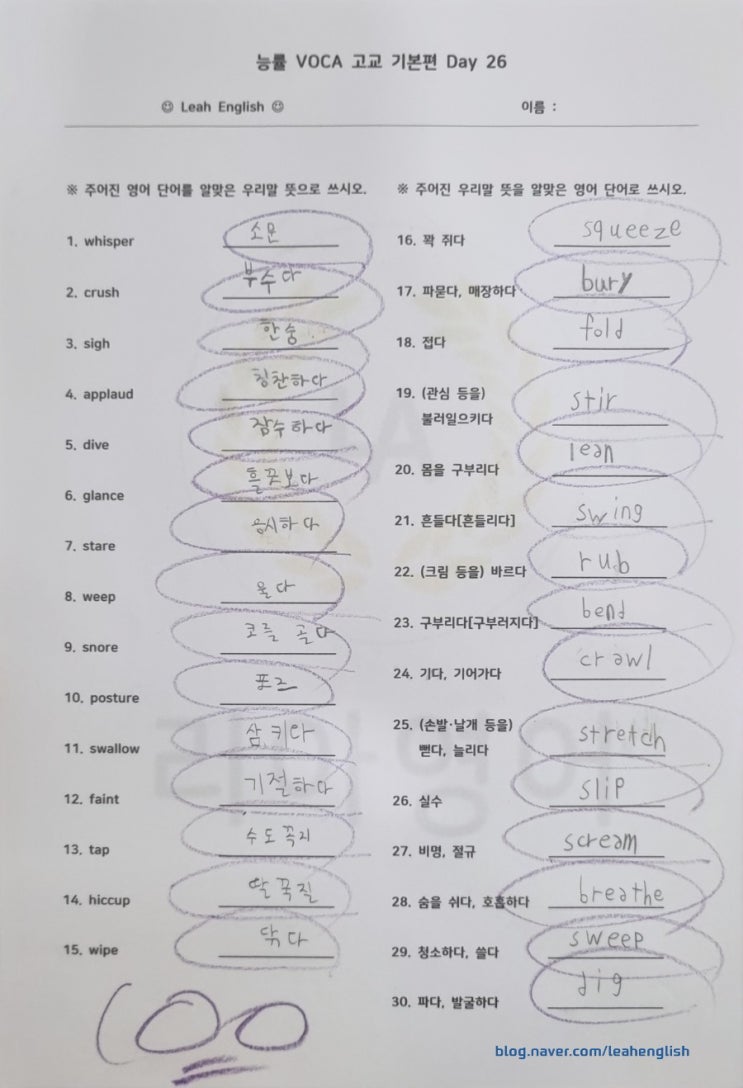 능률 VOCA 고교 기본편 Day 26
☺ Leah English ☺
이름 :
※ 주어진 영어 단어를 알맞은 우리말 뜻으로 쓰시오.
1. whisper 소문
2. crush 부수다
3. sigh 한숨
4. applaud 칭찬하다
5. dive 잠수하다
6. glance 흘끗보다
7. stare 응시하다
8. weep 울다
9. snore 코를 골다
10. posture 포즈
11. swallow 삼키다
12. faint 기절하다
13. tap 수도꼭지
14. hiccup 딸꾹질
15. wipe 닦다
100
※ 주어진 우리말 뜻을 알맞은 영어 단어로 쓰시오.
16. 꽉 쥐다 squeeze
17. 파묻다, 매장하다 bury
18. 접다 fold
19. (관심 등을)
불러일으키다 stir
20. 몸을 구부리다 lean
21. 흔들다[흔들리다] swing
22. (크림 등을) 바르다 rub
23. 구부리다[구부러지다] bend
24. 기다, 기어가다 crawl
25. (손발·날개 등을)
뻗다, 늘리다 stretch
26. 실수 slip
27. 비명, 절규 scream
28. 숨을 쉬다, 호흡하다 breathe
29. 청소하다, 쓸다 sweep
30. 파다, 발굴하다 dig
리아영어
blog.naver.com/leahenglish